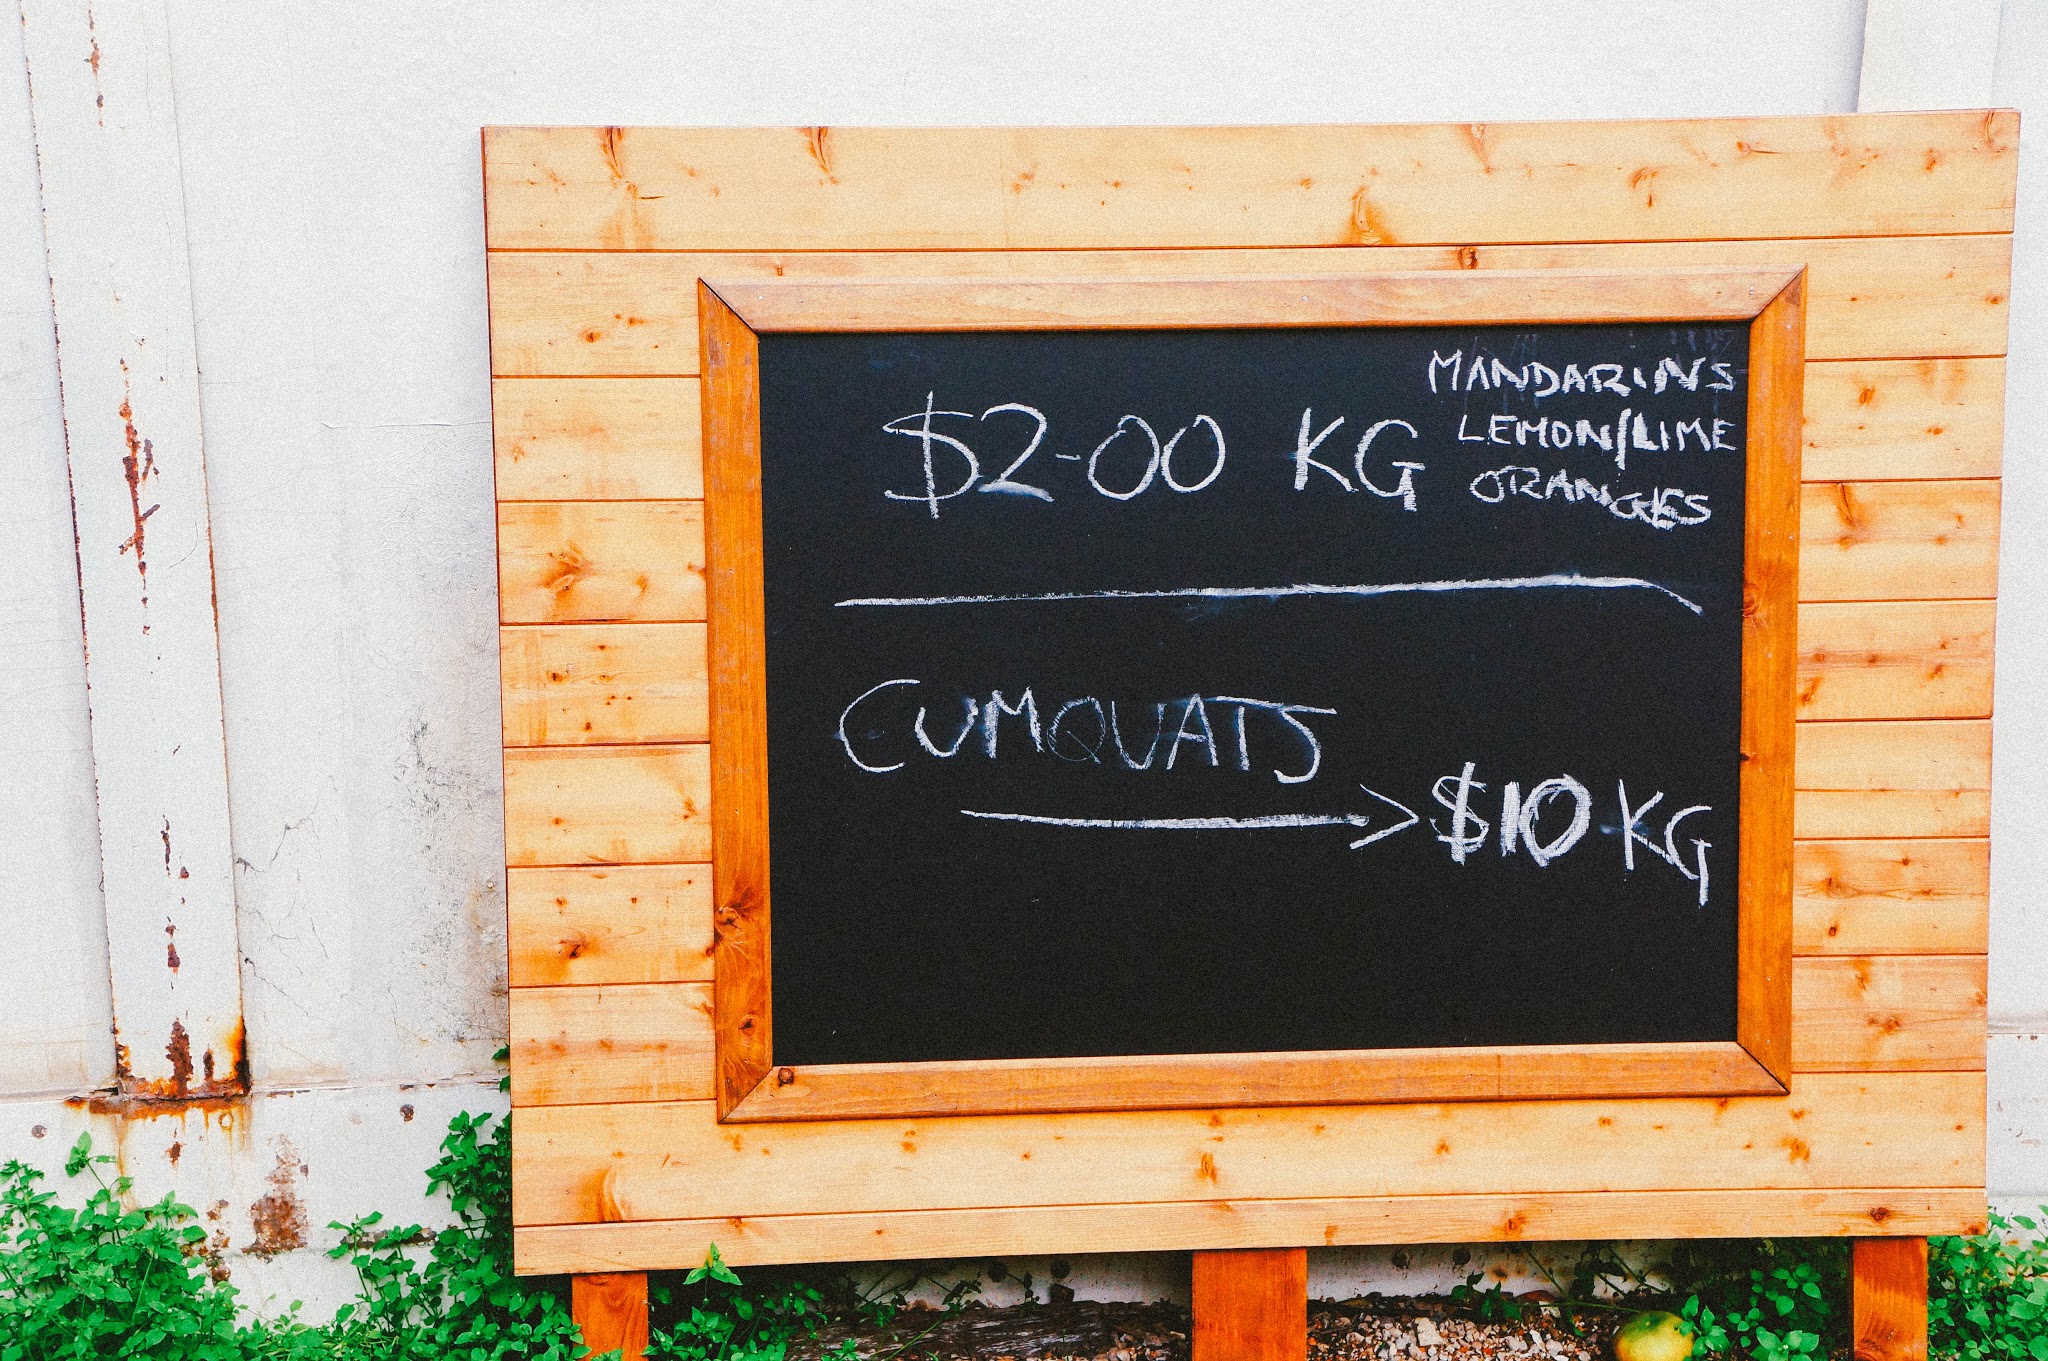 $2-00 KG
MANDARINS
LEMON/LIME
ORANGES
CUMQUATS
$10 KG